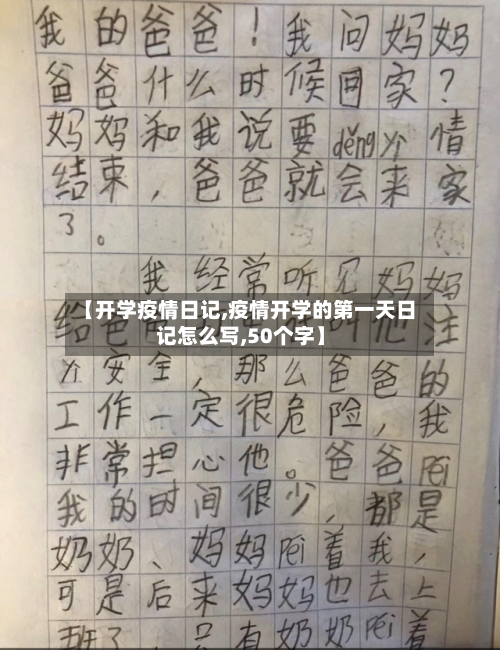 我的爸爸！我问妈妈
爸爸什么时候回家？
妈妈和我说要děng yì情
结束，爸爸就会来家
了。
我经常听见妈妈
给爸
他注
【开学疫情日记,疫情开学的第一天日
记怎么写,50个字】
yì安全，那么爸爸的
工作一定很危险，我
非常担心他。爸爸péi
我的时间很少，都是
奶奶、妈妈péi着我，
可是后来妈妈也去上
班了，只有奶奶péi着